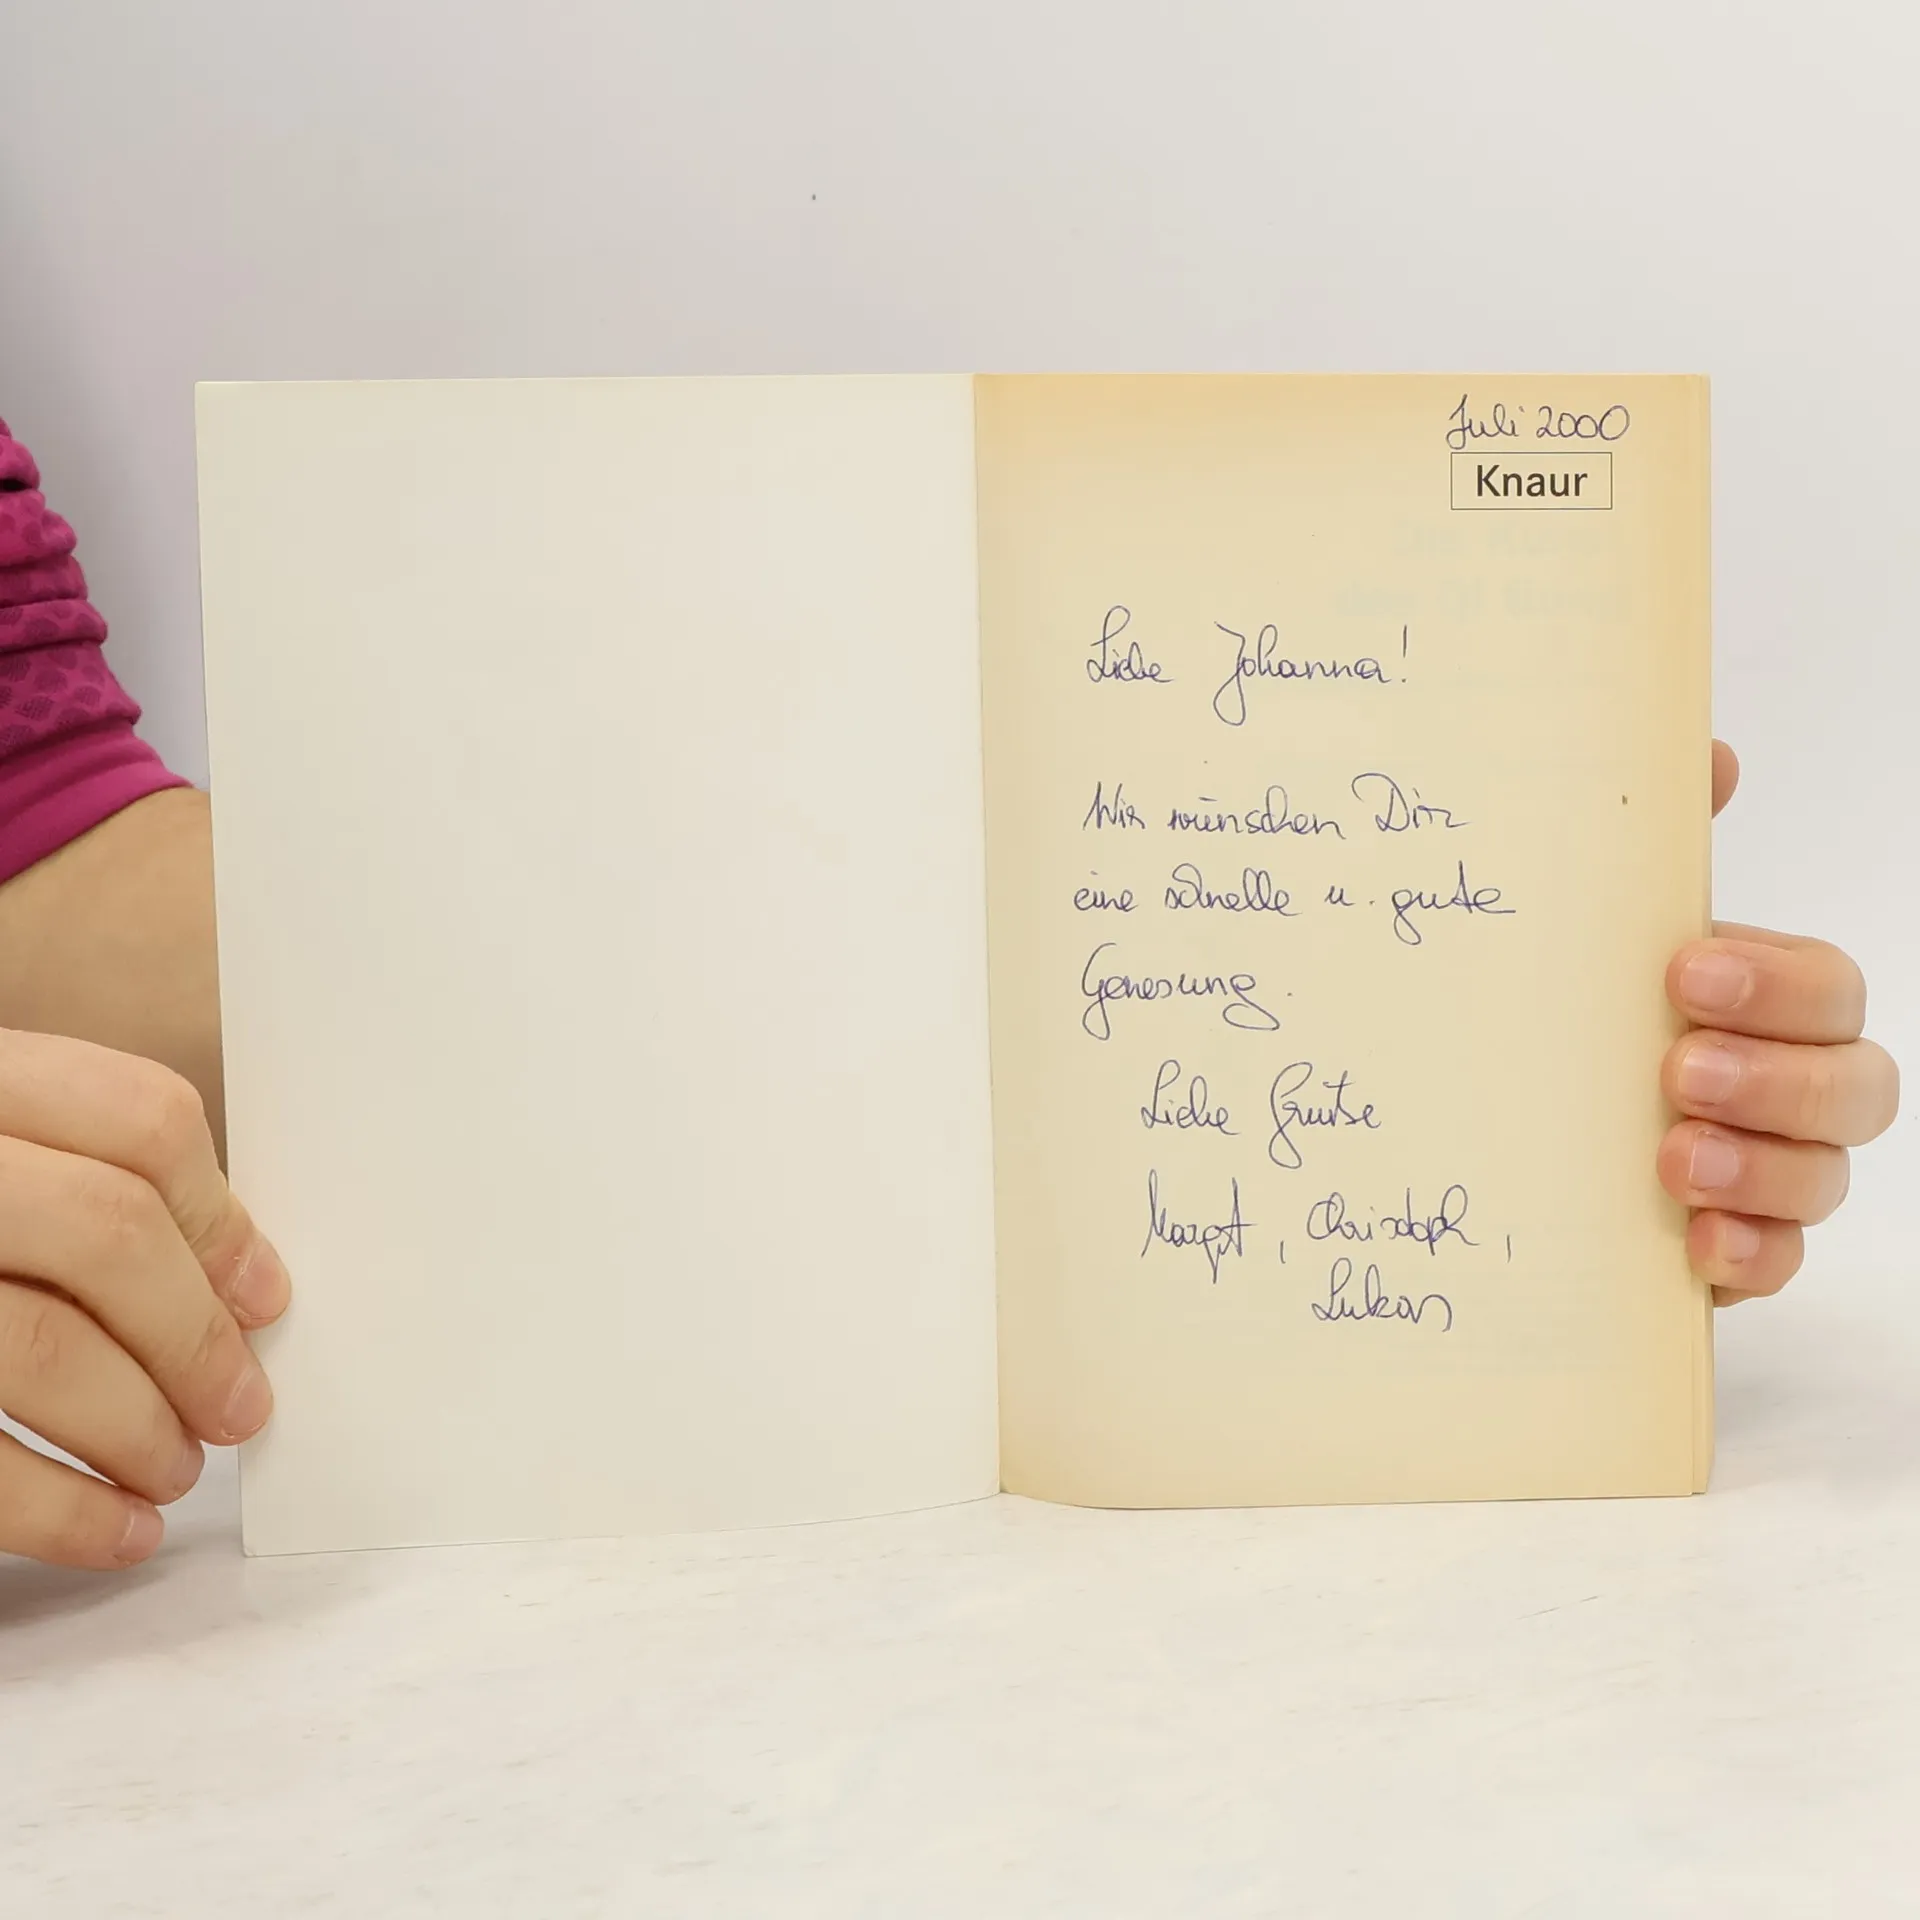 Juli 2000
Knaur
Liebe Johanna!
Wir wünschen Dir
eine schnelle u. gute
Genesung.
Liebe Grüße
Margit, Christoph,
Lukas